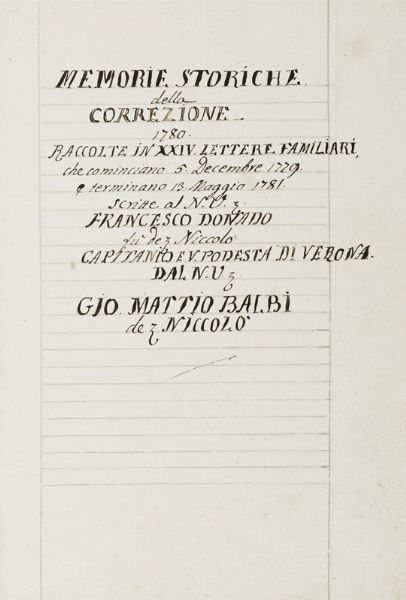 MEMORIE STORICHE
della
CORREZIONE
1780.
RACCOLTE IN XXIV. LETTERE FAMILIARI,
che cominciano 5. Decembre 1779.
e terminano 13. Maggio 1781.
Scritte al N. U. z
FRANCESCO DONADO
fù de z Niccolo
CAPITANIO E V. PODESTA DI VERONA.
DAL N. U z
GIO. MATTIO BALBI
de z NICCOLO'